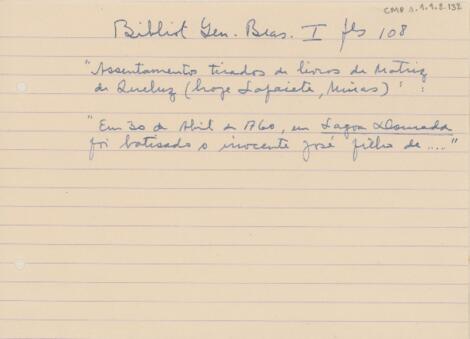 CMP 2.1.9.2.132
Bibliot Gen. Bras. I fls 108
"Assentamento tirados de livros da Matriz
de Queluz (hoje Lafaiete, Minas)" :
"Em 30 de Abril de 1760, em Lagoa Dourada
foi batisado o inocente José filho de ...."